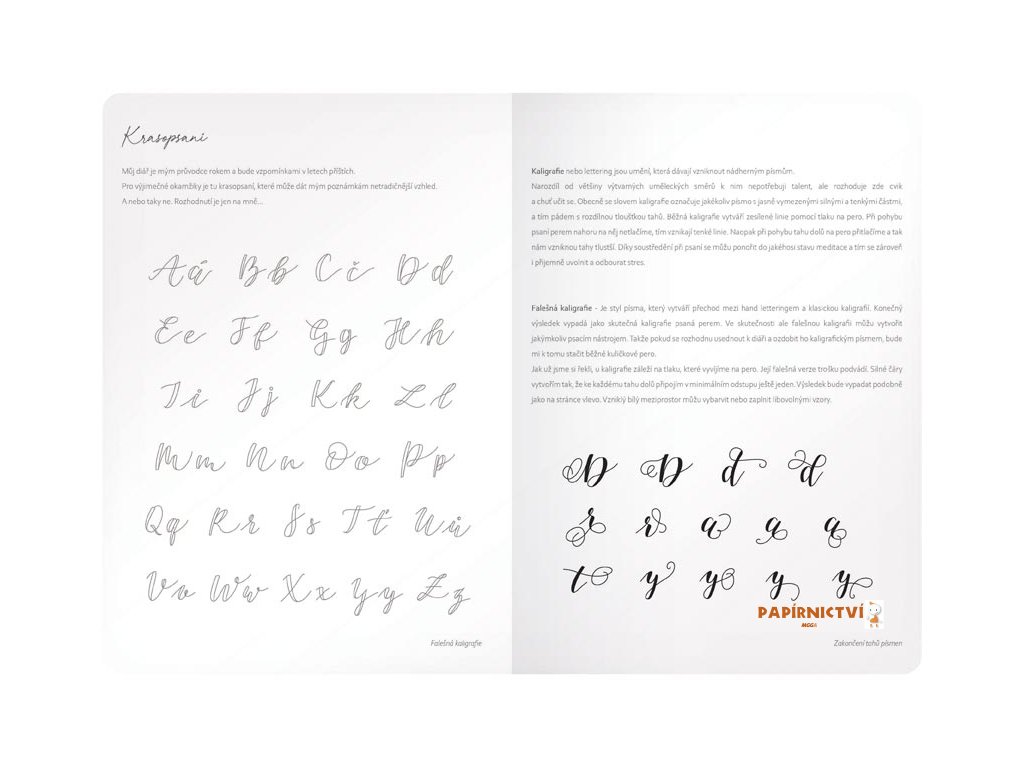 Krasopsaní
Můj diář je mým průvodce rokem a bude vzpomínkami v letech příštích.
Pro výjimečné okamžiky je tu krasopsaní, které může dát mým poznámkám netradičnější vzhled.
A nebo taky ne. Rozhodnutí je jen na mně...
Aá Bb Cč Dd
Ee Ff Gg Hh
Ii Jj Kk Ll
Mm Nn Oo Pp
Qq Rr Ss Tť Uů
Vv Ww Xx Yy Zz
Falešná kaligrafie
Kaligrafie nebo lettering jsou umění, která dávají vzniknout nádherným písmům.
Narozdíl od většiny výtvarných uměleckých směrů k nim nepotřebuji talent, ale rozhoduje zde cvik
a chuť učit se. Obecně se slovem kaligrafie označuje jakékoliv písmo s jasně vymezenými silnými a tenkými částmi,
a tím pádem s rozdílnou tloušťkou tahů. Běžná kaligrafie vytváří zesílené linie pomocí tlaku na pero. Při pohybu
psaní perem nahoru na něj netlačíme, tím vznikají tenké linie. Naopak při pohybu tahu dolů na pero přitlačíme a tak
nám vzniknou tahy tlustší. Díky soustředění při psaní se můžu ponořit do jakéhosi stavu meditace a tím se zároveň
i příjemně uvolnit a odbourat stres.
Falešná kaligrafie - Je styl písma, který vytváří přechod mezi hand letteringem a klasickou kaligrafií. Konečný
výsledek vypadá jako skutečná kaligrafie psaná perem. Ve skutečnosti ale falešnou kaligrafii můžu vytvořit
jakýmkoliv psacím nástrojem. Takže pokud se rozhodnu usednout k diáři a ozdobit ho kaligrafickým písmem, bude
mi k tomu stačit běžné kuličkové pero.
Jak už jsme si řekli, u kaligrafie záleží na tlaku, které vyvíjíme na pero. Její falešná verze trošku podvádí. Silné čáry
vytvořím tak, že ke každému tahu dolů připojím v minimálním odstupu ještě jeden. Výsledek bude vypadat podobně
jako na stránce vlevo. Vzniklý bílý meziprostor můžu vybarvit nebo zaplnit libovolnými vzory.
D D d d
r r a a a
t y y y y
PAPÍRNICTVÍ
MGG8
Zakončení tahů písmen